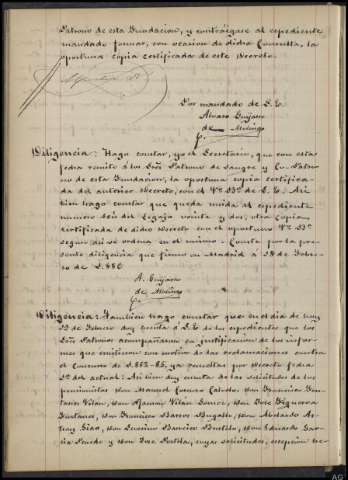 Patrono de esta Fundacion, y contráigase al expediente
mandado formar, con ocasion de dicha Consulta, la
oportuna copia certificada de este Decreto.
Por mandado de S. E.
Alvaro Guijarro
de
Diligencia: Hago constar, yo el Secretario, que con esta
fecha remito á los Sres Patrono de sangre y Co-Patro-
no de esta Fundacion, la oportuna copia certifica-
da del anterior decreto, con el Vº Bº de S. E. Así
bien hago constar que queda unida al expediente
número seis del legajo veinte y dos, otra copia
certificada de dicho decreto con el oportuno Vº Bº
segun así se ordena en el mismo. Consta por la pre-
sente diligencia que firmo en Madrid á 28 de Febre-
ro de 1.886
A. Guijarro
de
Diligencia: Tambien hago constar que en el dia de hoy
de Febrero doy cuenta á S. E. de los expedientes que los
Sres Patronos acompañaron en justificacion de los infor-
mes que emitieron con motivo de las reclamaciones contra
el Concurso de 1.882-85, ya resueltas por Decreto fecha
1º del actual: Así bien doy cuenta de las solicitudes de los
pensionistas Don Manuel Don Francisco Gon-
zalez Don Ramon Don José Figueroa
Don Francisco Barros Don Abelardo
Don Don Eduardo Gar-
cía y Don José Portela, cuyas solicitudes, excepcion he-
AG